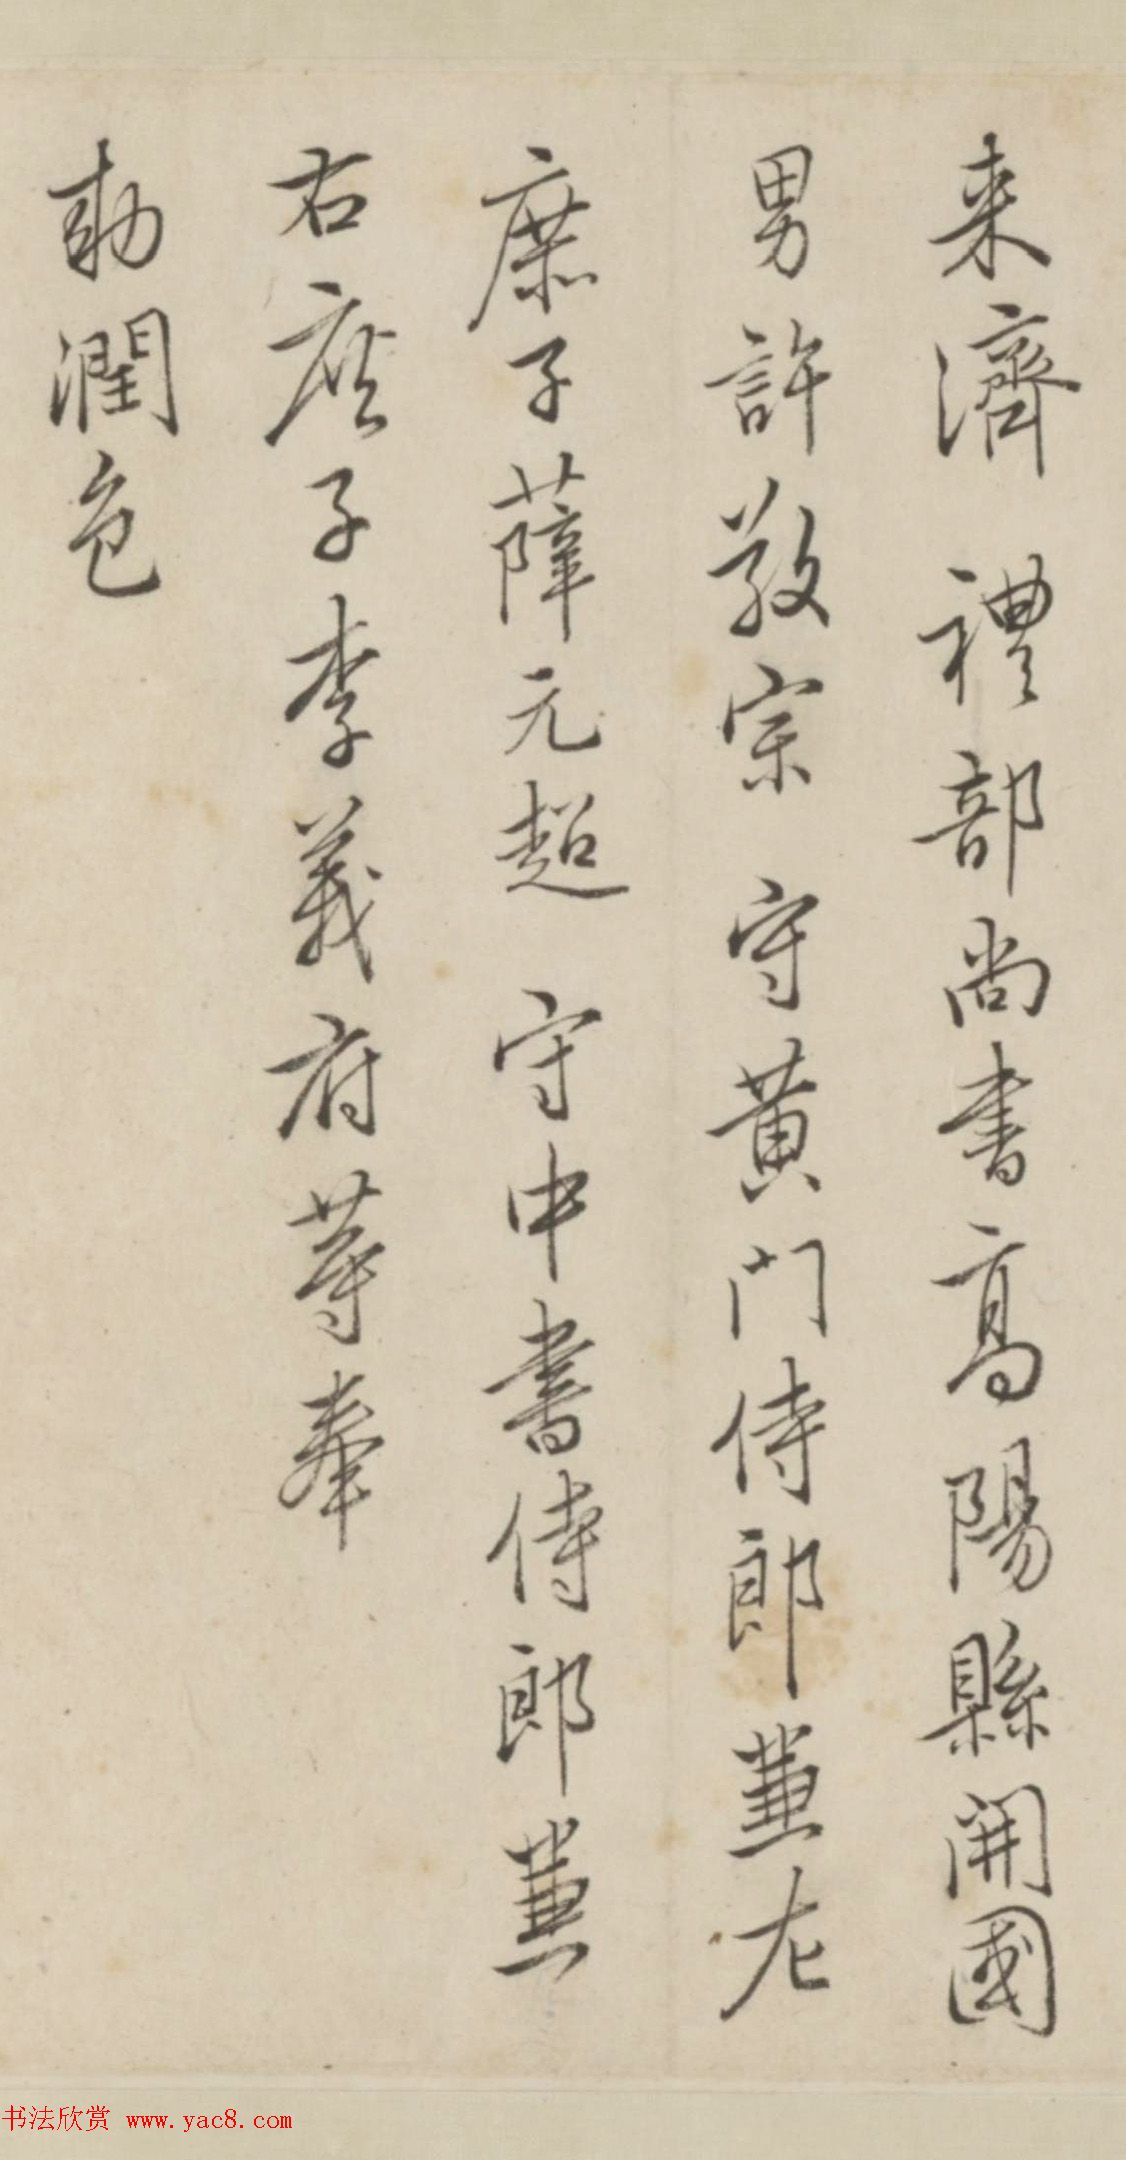 来濟 禮部尚書高陽縣開國
男許敬宗 守黃門侍郎蕐左
庶子薛元超 守中書侍郎蕐
右庶子李義府等奉
勑潤色
书法欣赏 www.yac8.com